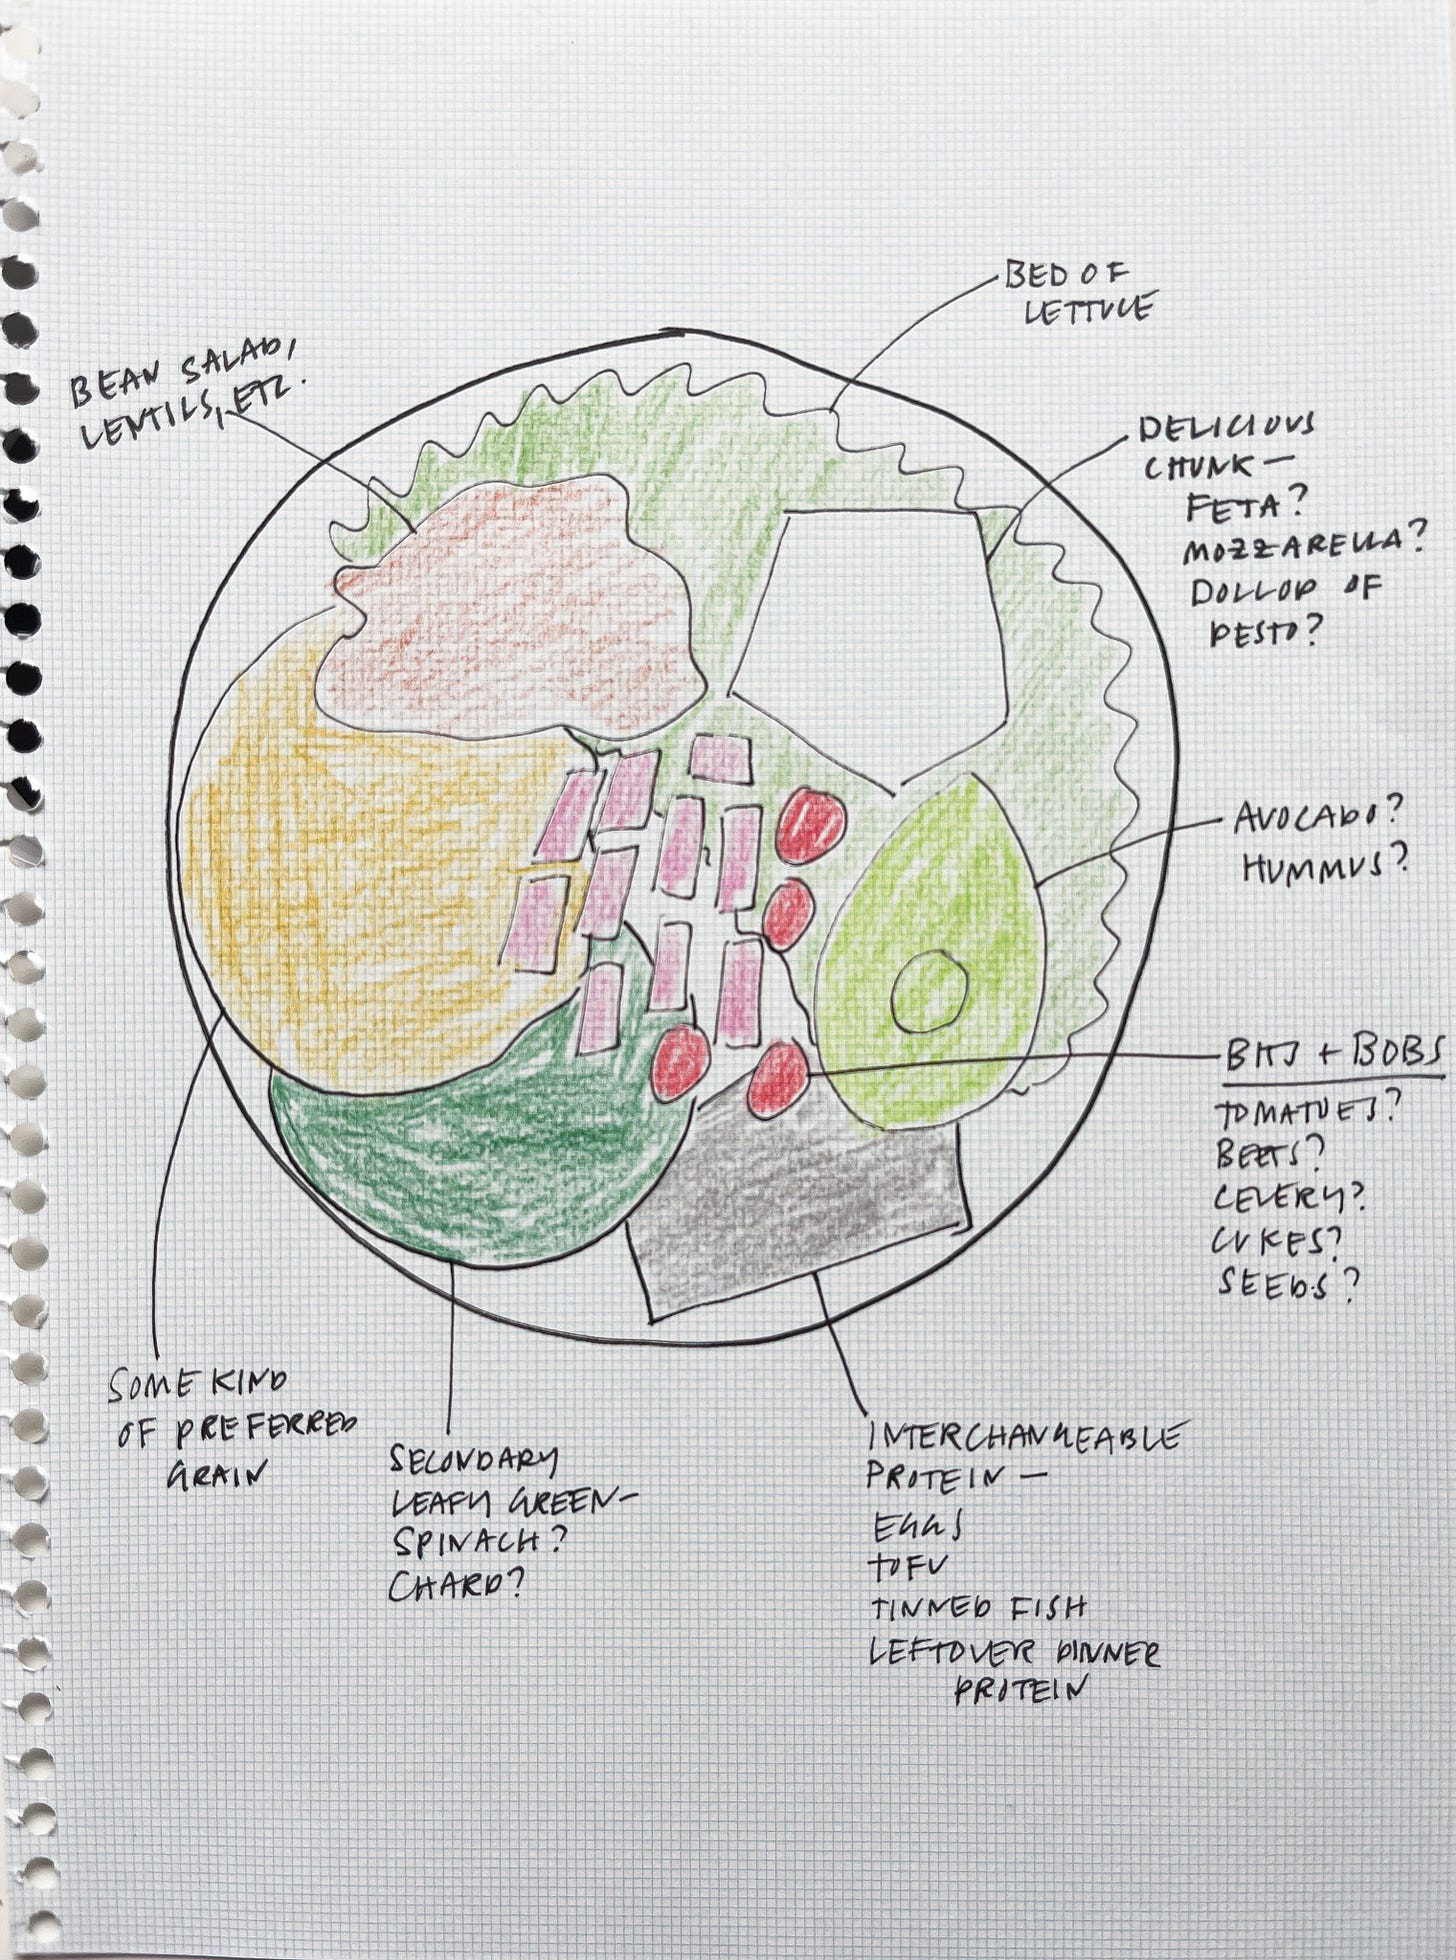 BED OF
LETTUCE
BEAN SALAD,
LENTILS, ETC.
DELICIOUS
CHUNK —
FETA?
MOZZARELLA?
DOLLOP OF
PESTO?
AVOCADO?
HUMMUS?
BITS + BOBS
TOMATOES?
BEETS?
CELERY?
CUKES?
SEEDS?
SOME KIND
OF PREFERRED
GRAIN
SECONDARY
LEAFY GREEN —
SPINACH?
CHARD?
INTERCHANGEABLE
PROTEIN —
EGGS
TOFU
TINNED FISH
LEFTOVER DINNER
PROTEIN